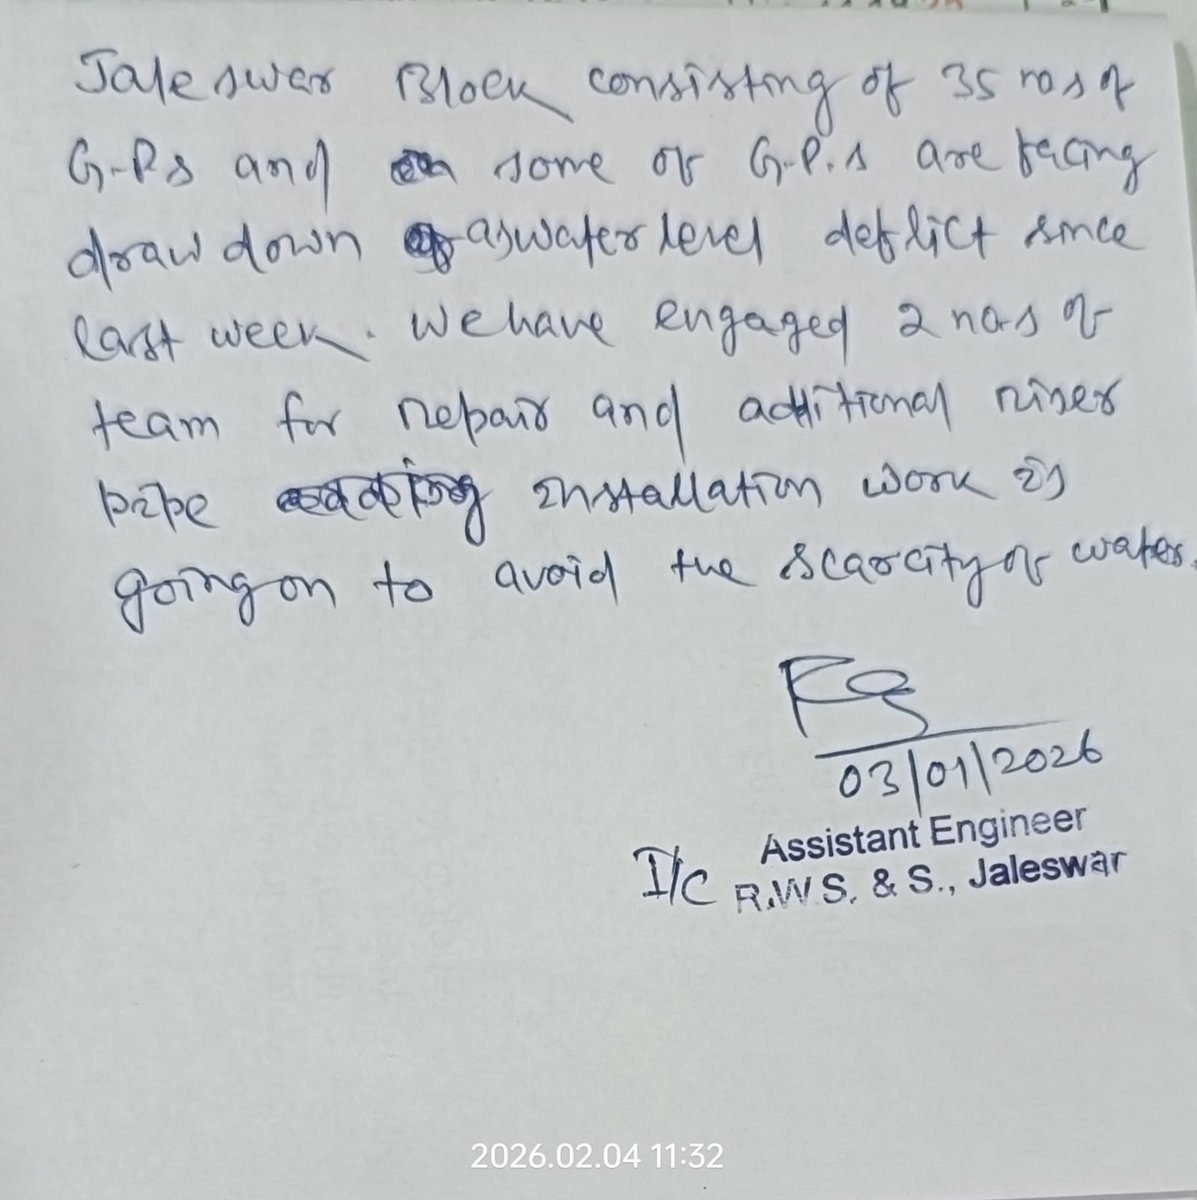 Jaleswar Block consisting of 35 nos of
G.Ps and some of G.P.s are facing
draw down as water level deflict since
last week. We have engaged 2 nos of
team for repair and additional riser
pipe installation work is
going on to avoid the scarcity of water.
03/01/2026
Assistant Engineer
I/C R.W.S. & S., Jaleswar
2026.02.04 11:32